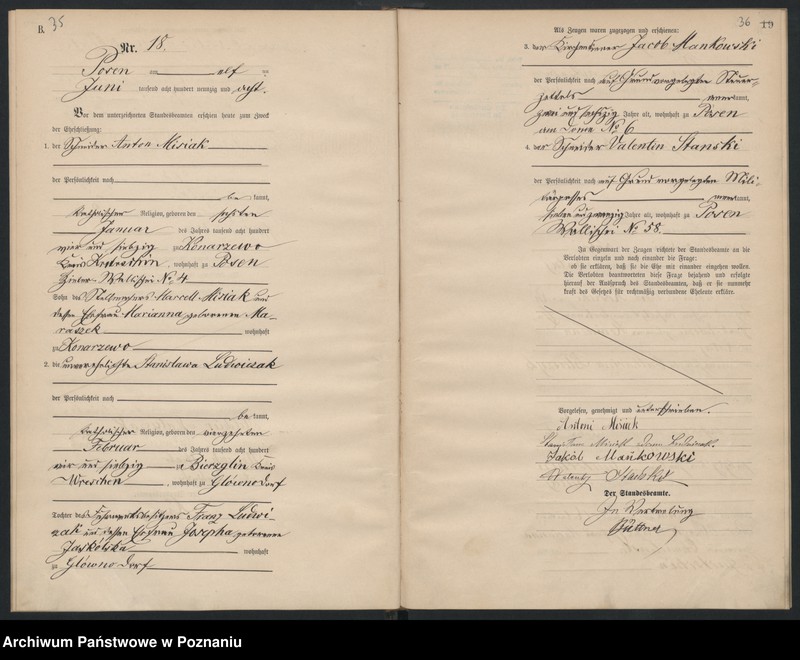 B. 35
Nr. 18.
Posen am elf ten
Juni tausend acht hundert neunzig und acht.
Vor dem unterzeichneten Standesbeamten erschienen heute zum Zweck
der Eheschließung:
1. der Schneider Anton Misiak
der Persönlichkeit nach
be kannt,
katholischer Religion, geboren den
Januar des Jahres tausend acht hundert
vier und siebzig zu Konarzewo
Kreis, wohnhaft zu Posen
Wallischei No 4
Sohn des Marcell Misiak und
dessen Ehefrau Marianna geborenen Ma-
raszek wohnhaft
zu Konarzewo
2. die unverehelichte Stanislawa Ludwiczak
der Persönlichkeit nach
be kannt,
katholischer Religion, geboren den vierzehnten
Februar des Jahres tausend acht hundert
vier und siebzig zu Bierzglin Kreis
Wreschen, wohnhaft zu Glowno Dorf
Tochter des Franz Ludwi-
czak und dessen Ehefrau Josepha geborenen
Jaskolska wohnhaft
zu Glowno Dorf
36 19
Als Zeugen waren zugezogen und erschienen:
3. der Kirchendiener Jacob Mankowski
der Persönlichkeit nach auf Grund vorgelegten Steuer-
zettels anerkannt,
zwei und sechszig Jahre alt, wohnhaft zu Posen
am Dome No 6
4. der Schneider Valentin Stanski
der Persönlichkeit nach auf Grund vorgelegten Mili-
tärpasses anerkannt,
Jahre alt, wohnhaft zu Posen
Wallischei No 58.
In Gegenwart der Zeugen richtete der Standesbeamte an die
Verlobten einzeln und nach einander die Frage:
ob sie erklären, daß sie die Ehe mit einander eingehen wollen.
Die Verlobten beantworteten diese Frage bejahend und erfolgte
hierauf der Ausspruch des Standesbeamten, daß er sie nunmehr
kraft des Gesetzes für rechtmäßig verbundene Eheleute erkläre.
Vorgelesen, genehmigt und unterschrieben.
Antoni Misiak
Jakób Mańkowski
Der Standesbeamte.
In Vertretung
Büttner
Archiwum Państwowe w Poznaniu